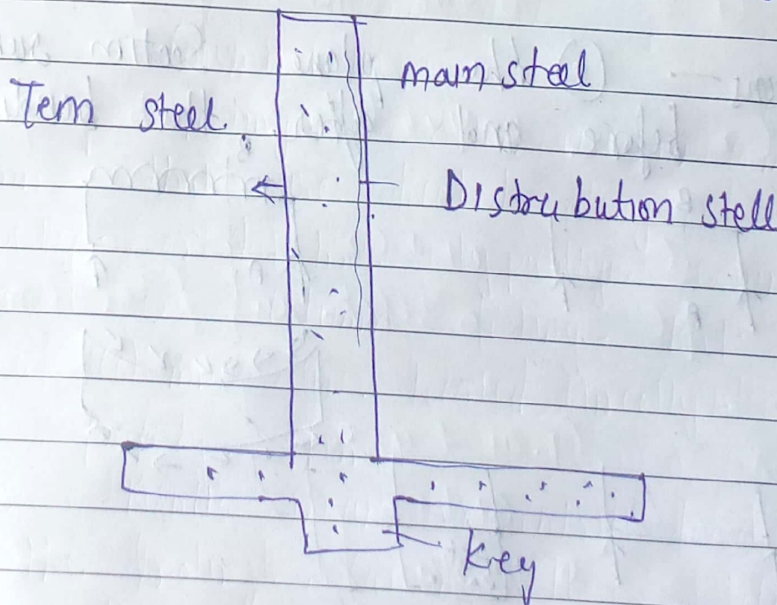 main steel
Tem steel.
Distribution stell
Key